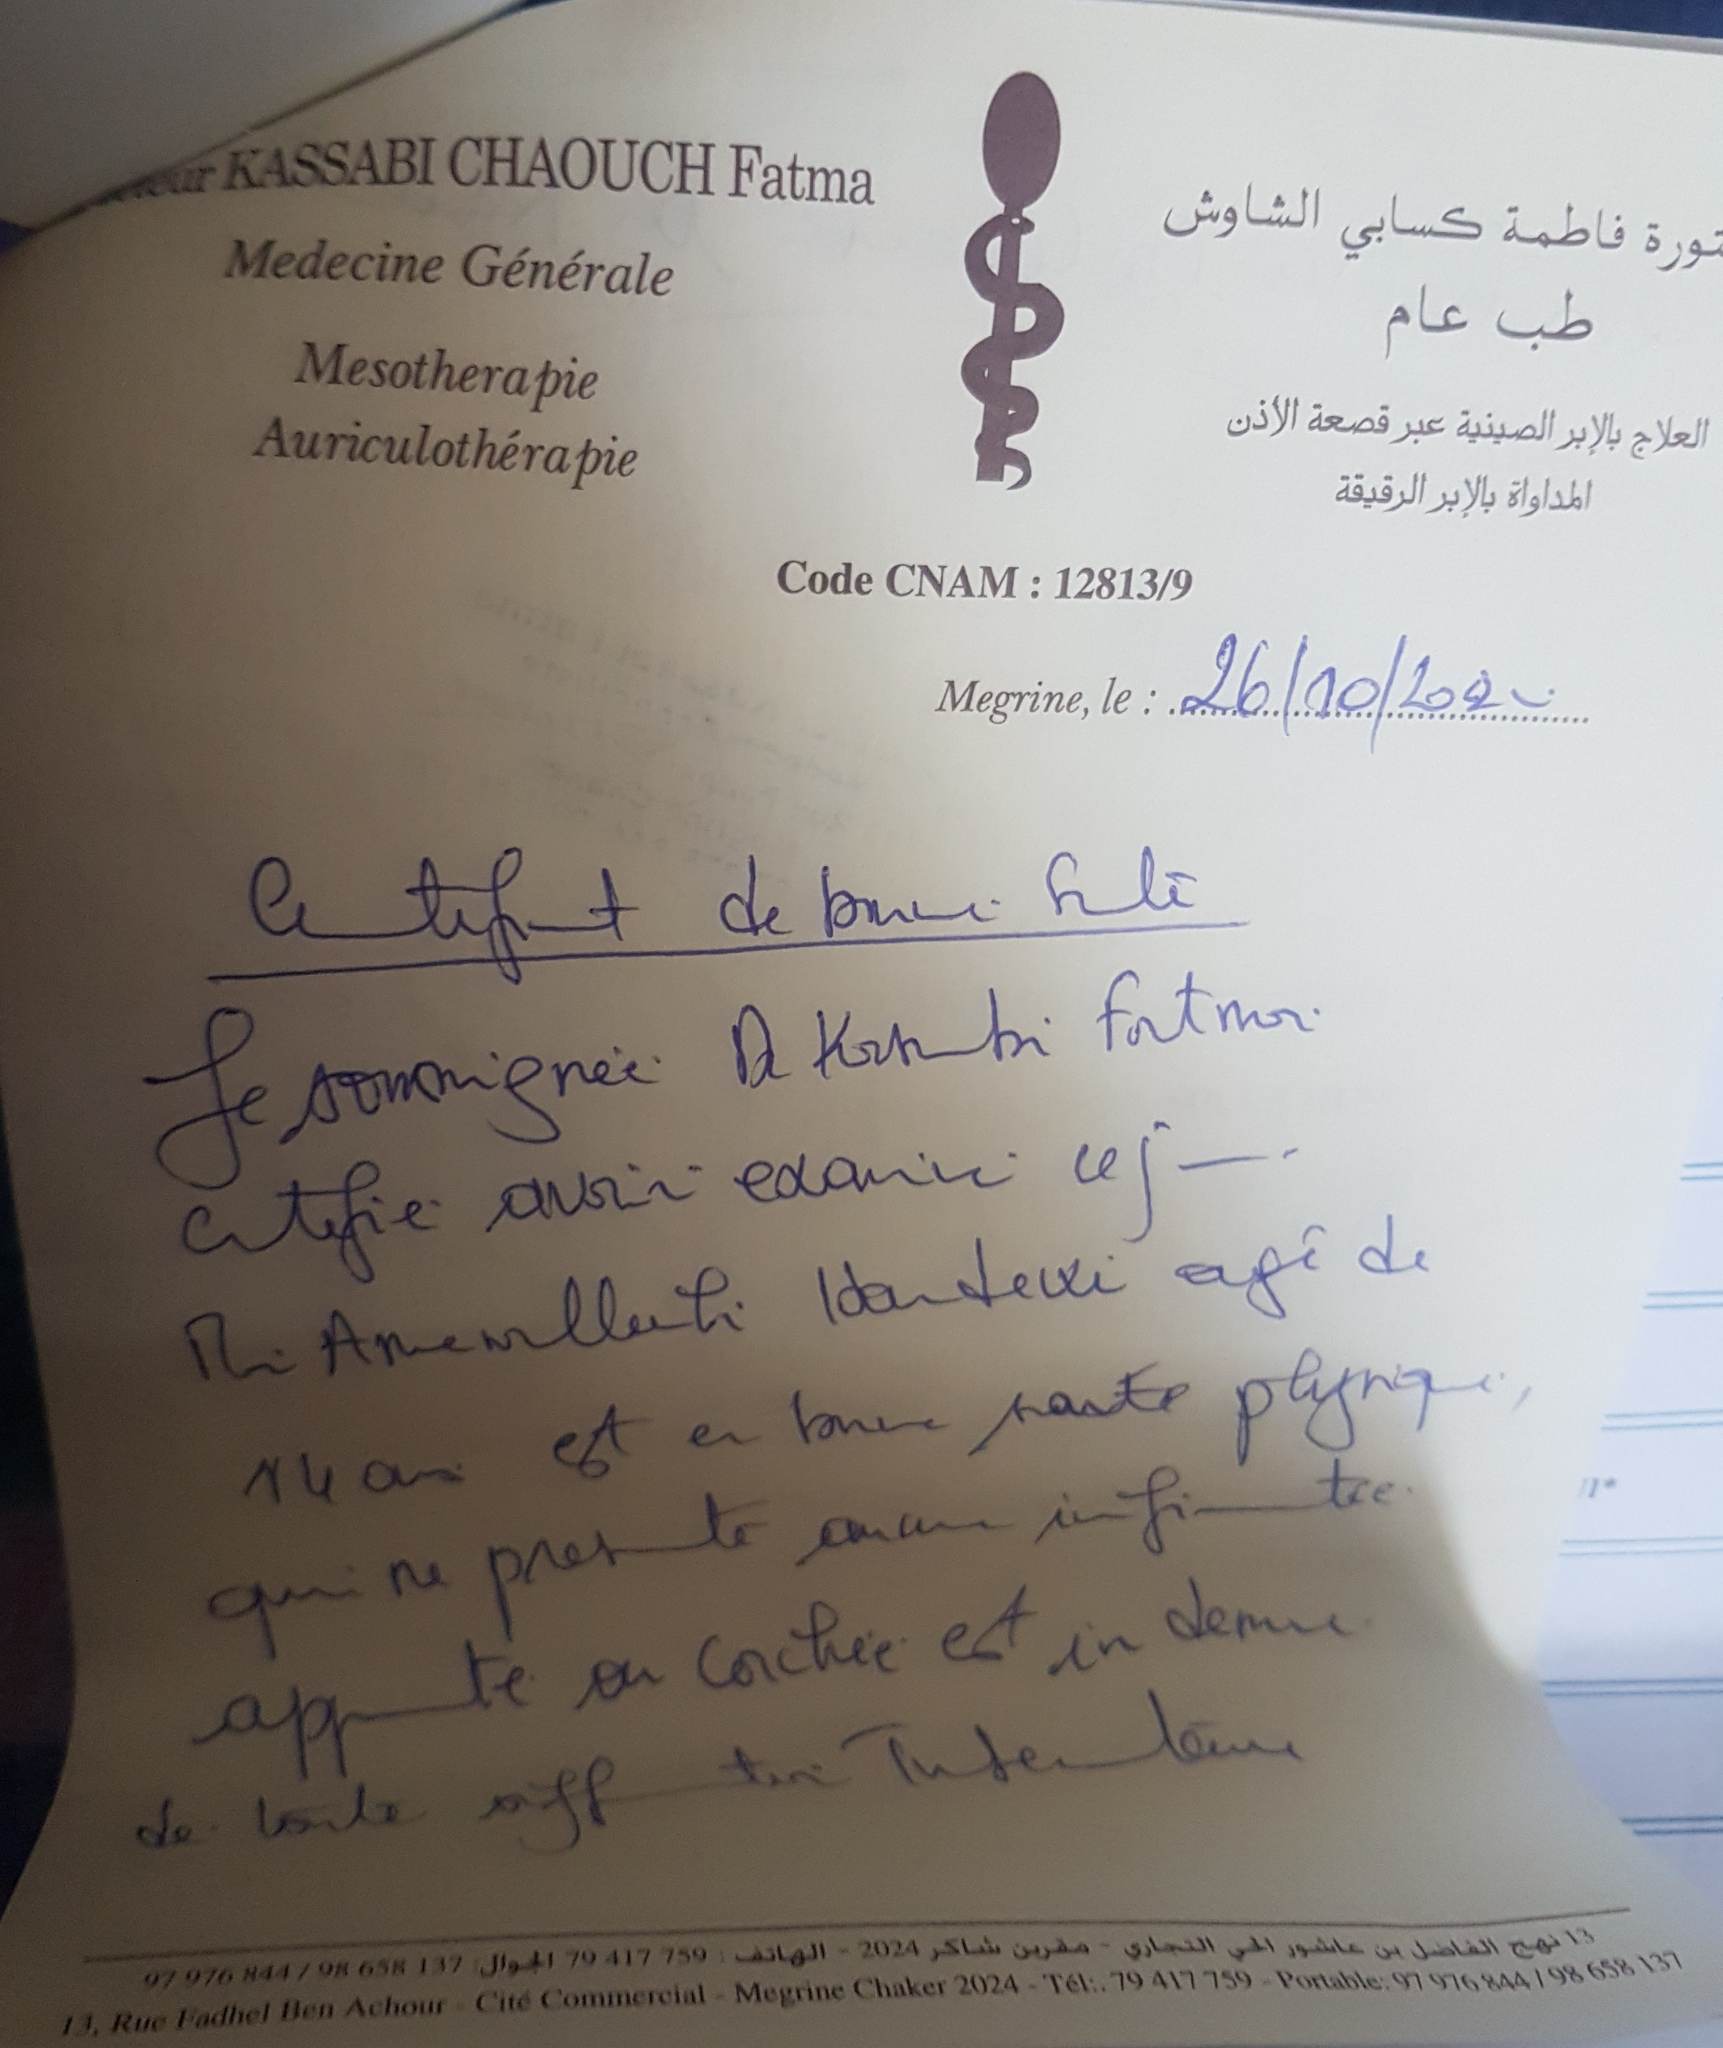 KASSABI CHAOUCH Fatma
Medecine Générale
Mesotherapie
Auriculothérapie
تورة فاطمة كسابي الشاوش
طب عام
العلاج بالإبر الصينية عبر قصعة الأذن
المداواة بالإبر الرقيقة
Code CNAM : 12813/9
Megrine, le : 26/10/2020
Certificat de bonne santé
Je soussignée Dr Kassabi Fatma
certifie avoir examiné ce j
agé de
14 ans est en bonne santé physique,
qui ne présente aucune infirmitée
apparente ou cachée est indemne
de toute affection
13 نهج الفاضل بن عاشور الحي التجاري - مقرين شاكر 2024 - الهاتف : 79 417 759 الجوال: 97 976 844 / 98 658 137
13, Rue Fadhel Ben Achour - Cité Commercial - Megrine Chaker 2024 - Tél:. 79 417 759 - Portable: 97 976 844 / 98 658 137